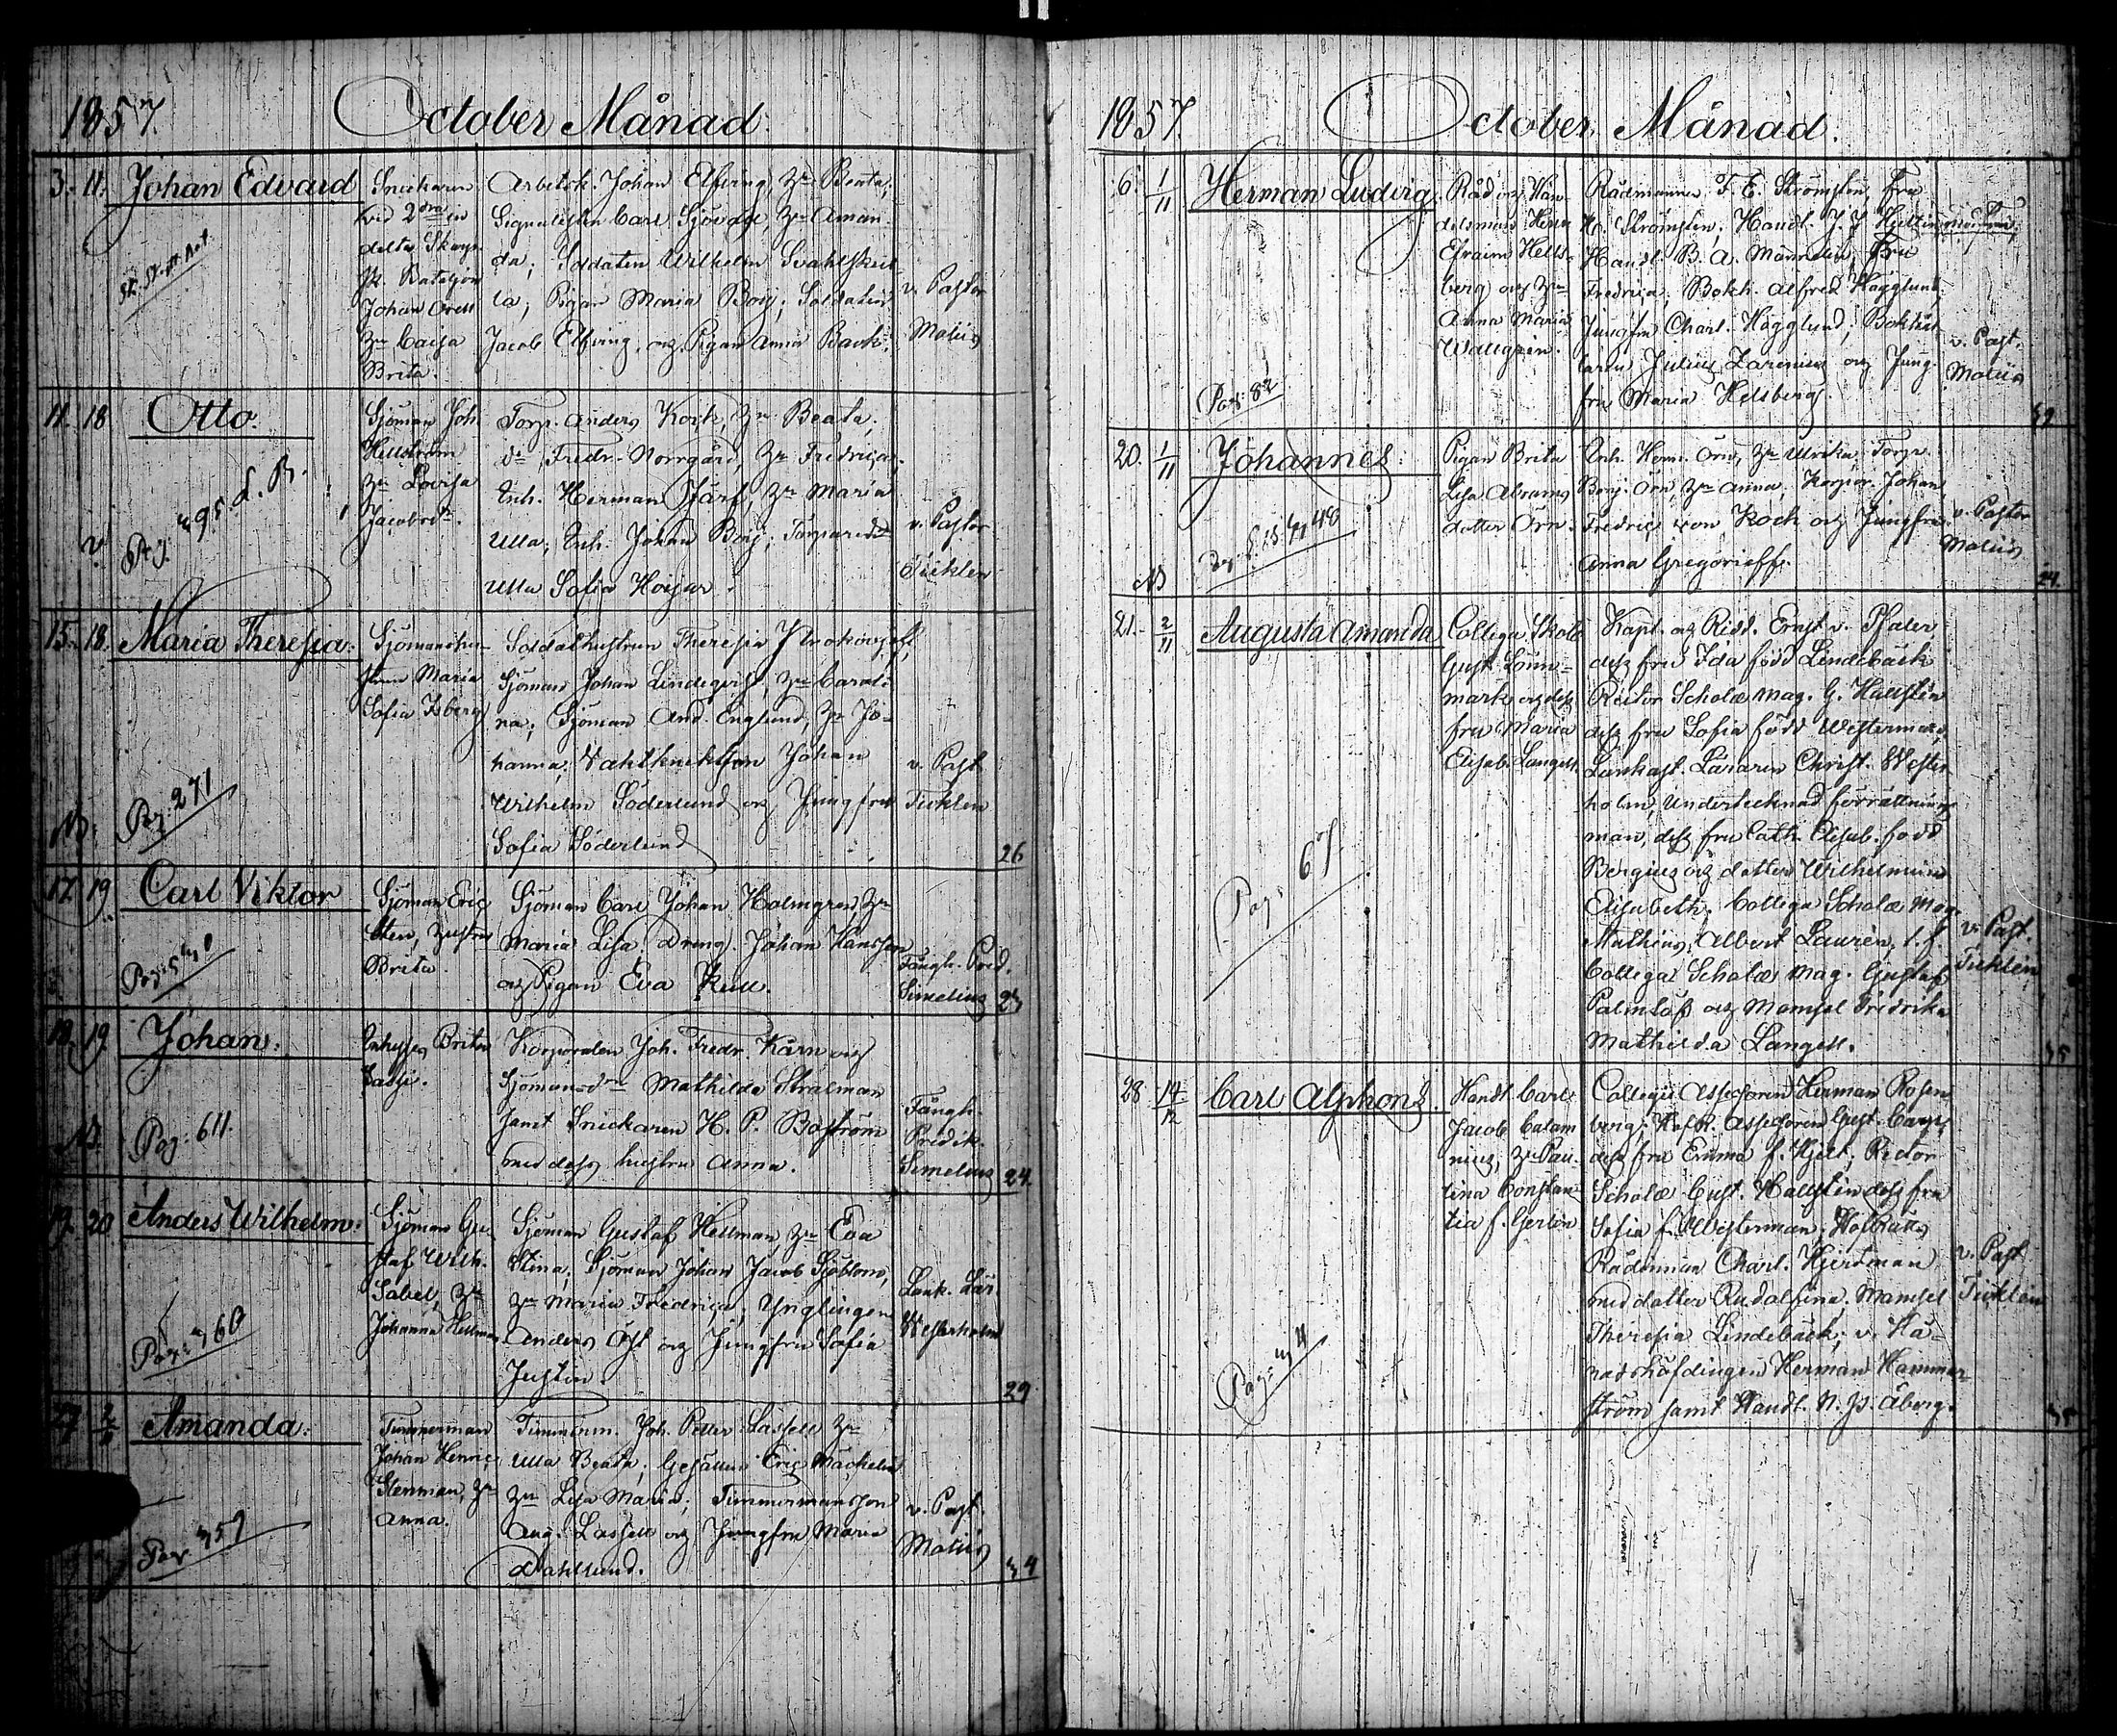 1857.
October Månad.
3. 11. Johan Edvard
Snickaren
vid 2dra in
delta Skarp
sk. Bataljon
Johan Orell
Hu Caisa
Brita.
Arbetsk. Johan Elfving, Hu Beata;
Signalisten Carl Sjöwall, Hu Aman
da; Soldaten Wilhelm
la; Pigan Maria Borg; Soldaten
Jacob Elfving, och Pigan Anna
v. Pastor
Molin
11. 18 Otto.
Pag. 495 L. B.
Sjöman Joh
Hellström
Hu Lovisa
Jacobsdr.
Torp. Anders Koik, Hu Beata;
do Fredr. Norrgård, Hu Fredrica
Inh. Herman Järf, Hu Maria
Ulla; Inh. Johan Borg; Torparedr
Ulla Sofia Horjar.
v. Pastor
Ticklén
15. 18. Maria Theresia.
NB.
Pag: 271
Sjömanshu-
strun Maria
Sofia Isberg
Soldathustrun Theresia
Sjöman Johan Lindeqvist, Hu Caroli
na; Sjöman And. Englund, Hu Jo-
hanna; Vahtknektson Johan
Wilhelm Söderlund och Jungfru
Sofia Söderlund
v. Past
Ticklén
26
17 19. Carl Viktor
Sjöman Eric
Sten, hustru
Brita.
Sjöman Carl Johan Holmgren, Hu
Maria Lisa; Dreng. Johan Hansson
och Pigan Eva Kull.
Fångh. Pred.
Simelius
18. 19 Johan.
NB.
Pag: 611.
Inhyses Brita
Korporalen Joh. Fredr. Kärn och
Sjömansdr Mathilda Strålman
samt Snickaren H. P. Boström
med dess hustru Anna.
Fångh.
Predik.
Simelius
24.
19. 20 Anders Wilhelm.
Pag: 360
Sjöman Gu
staf Wilh.
Sabel, Hu
Johanna Hellman
Sjöman Gustaf Hellman, Hu Eva
Stina; Sjöman Johan Jacob Sjöblom,
Hu Maria Fredrica; Ynglingen
Anders Öst och Jungfru Sofia
Justin.
Lank. Lär.
Westerholm
29.
27 2/11 Amanda.
Pag 357
Timmerman
Johan Henric
Stenman, Hu
Anna.
Timmerm. Joh. Petter Lassell Hu
Ulla Beata; Gesällen Eric Mäckelin
Hu Lisa Maria; Timmermansson
Aug. Lassell och Jungfru Maria
Dahllund.
v. Past.
Molin
34
1857.
October Månad.
6. 1/11 Herman Ludvig.
Pag: 82
Råd och Han-
delsman Henr
Efraim Hells-
berg och Hu
Anna Maria
Wallgrén.
Rådmannen F. E. Strömsten, Fru
Strömsten; Handl. J. J.
Handl. B. A. Mannelin, Fru
Fredrica; Bokh. Alfred Hägglund,
Jungfru Charl. Hägglund; Bokhål
laren Julius Zarenius och Jung
fru Maria Helsberg.
v. Past.
Molin
20. 1/11 Johannes.
NB
Pigan Brita
Lisa Abrams
dotter Örn.
Inh. Herm. Örn, Hu Ulrika; Torp.
Benj. Örn, Hu Anna; Korpor. Johan
Fredric von Koch och Jungfru
Anna Gregorieff.
v. Pastor
Molin
24.
21. 2/11 Augusta Amanda
Pag. 67
Collega Schola
Gust Lönn-
mark och dess
fru Maria
Elisab. Langell
Kapt. och Ridd. Ernst v. Pfaler,
dess fru Ida född Lindebäck
Rector Schola Mag. G. Hallstén
dess fru Sofia född Westerman,
Lankast. Läraren Christ. Wester
holm, undertecknad förrättnings
man, dess fru Cath. Elisab. född
Bergius och dotter Wilhelmina
Elisabeth; Collega Schola Mag.
Mathius, Albert Laurén, s. f.
Collega Schola Mag. Gustaf
Palmlöf och Mamsel Fredrika
Mathilda Langell.
v. Past.
Ticklén
35
28 14/12 Carl Alphons.
Handl. Carl
Jacob Calam
nius, Hu Pau-
lina Constan
tia f. Gerlin
Collegii Assessoren Herman Rosen
berg; Hofr. Assessoren Gust.
dess fru Emma f. Hjelt; Rector
Schola Gust. Hallstén dess fru
Sofia f. Westerman; Hofrätts
Rådman Charl. Hjertman
med dotter Rudolfina, Mamsel
Theresia Lindebäck; v. Hä-
radshöfdingen Herman Hammar
ström samt Handl. N. P. Åberg.
v. Past
Ticklén